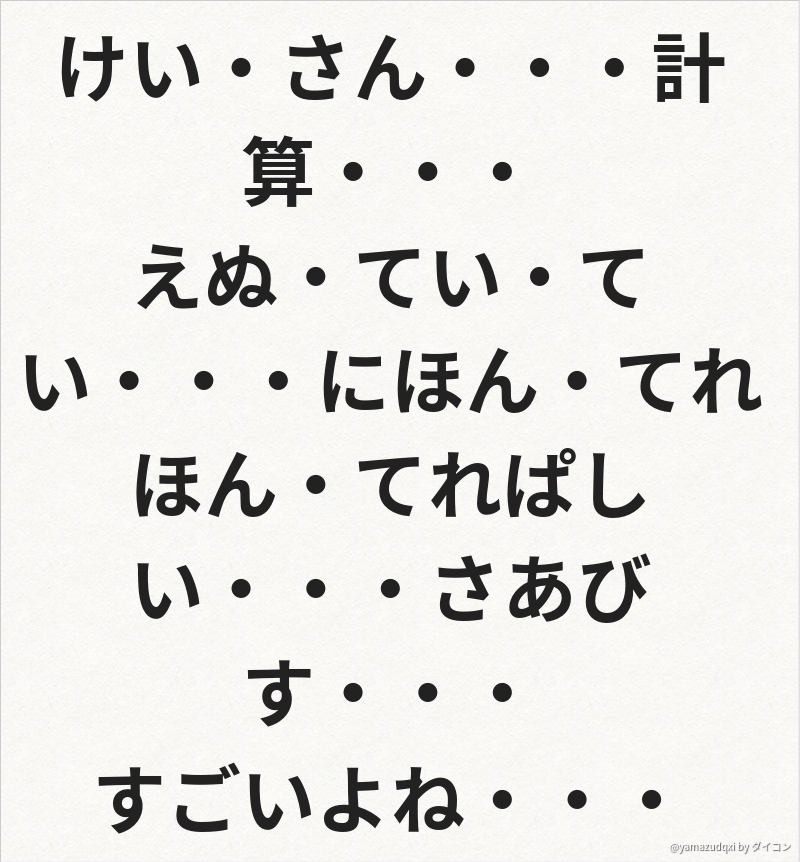 けい・さん・・・計
算・・・
えぬ・てい・て
い・・・にほん・てれ
ほん・てれぱし
い・・・さあび
す・・・
すごいよね・・・
@yamazudqxi by ダイコン